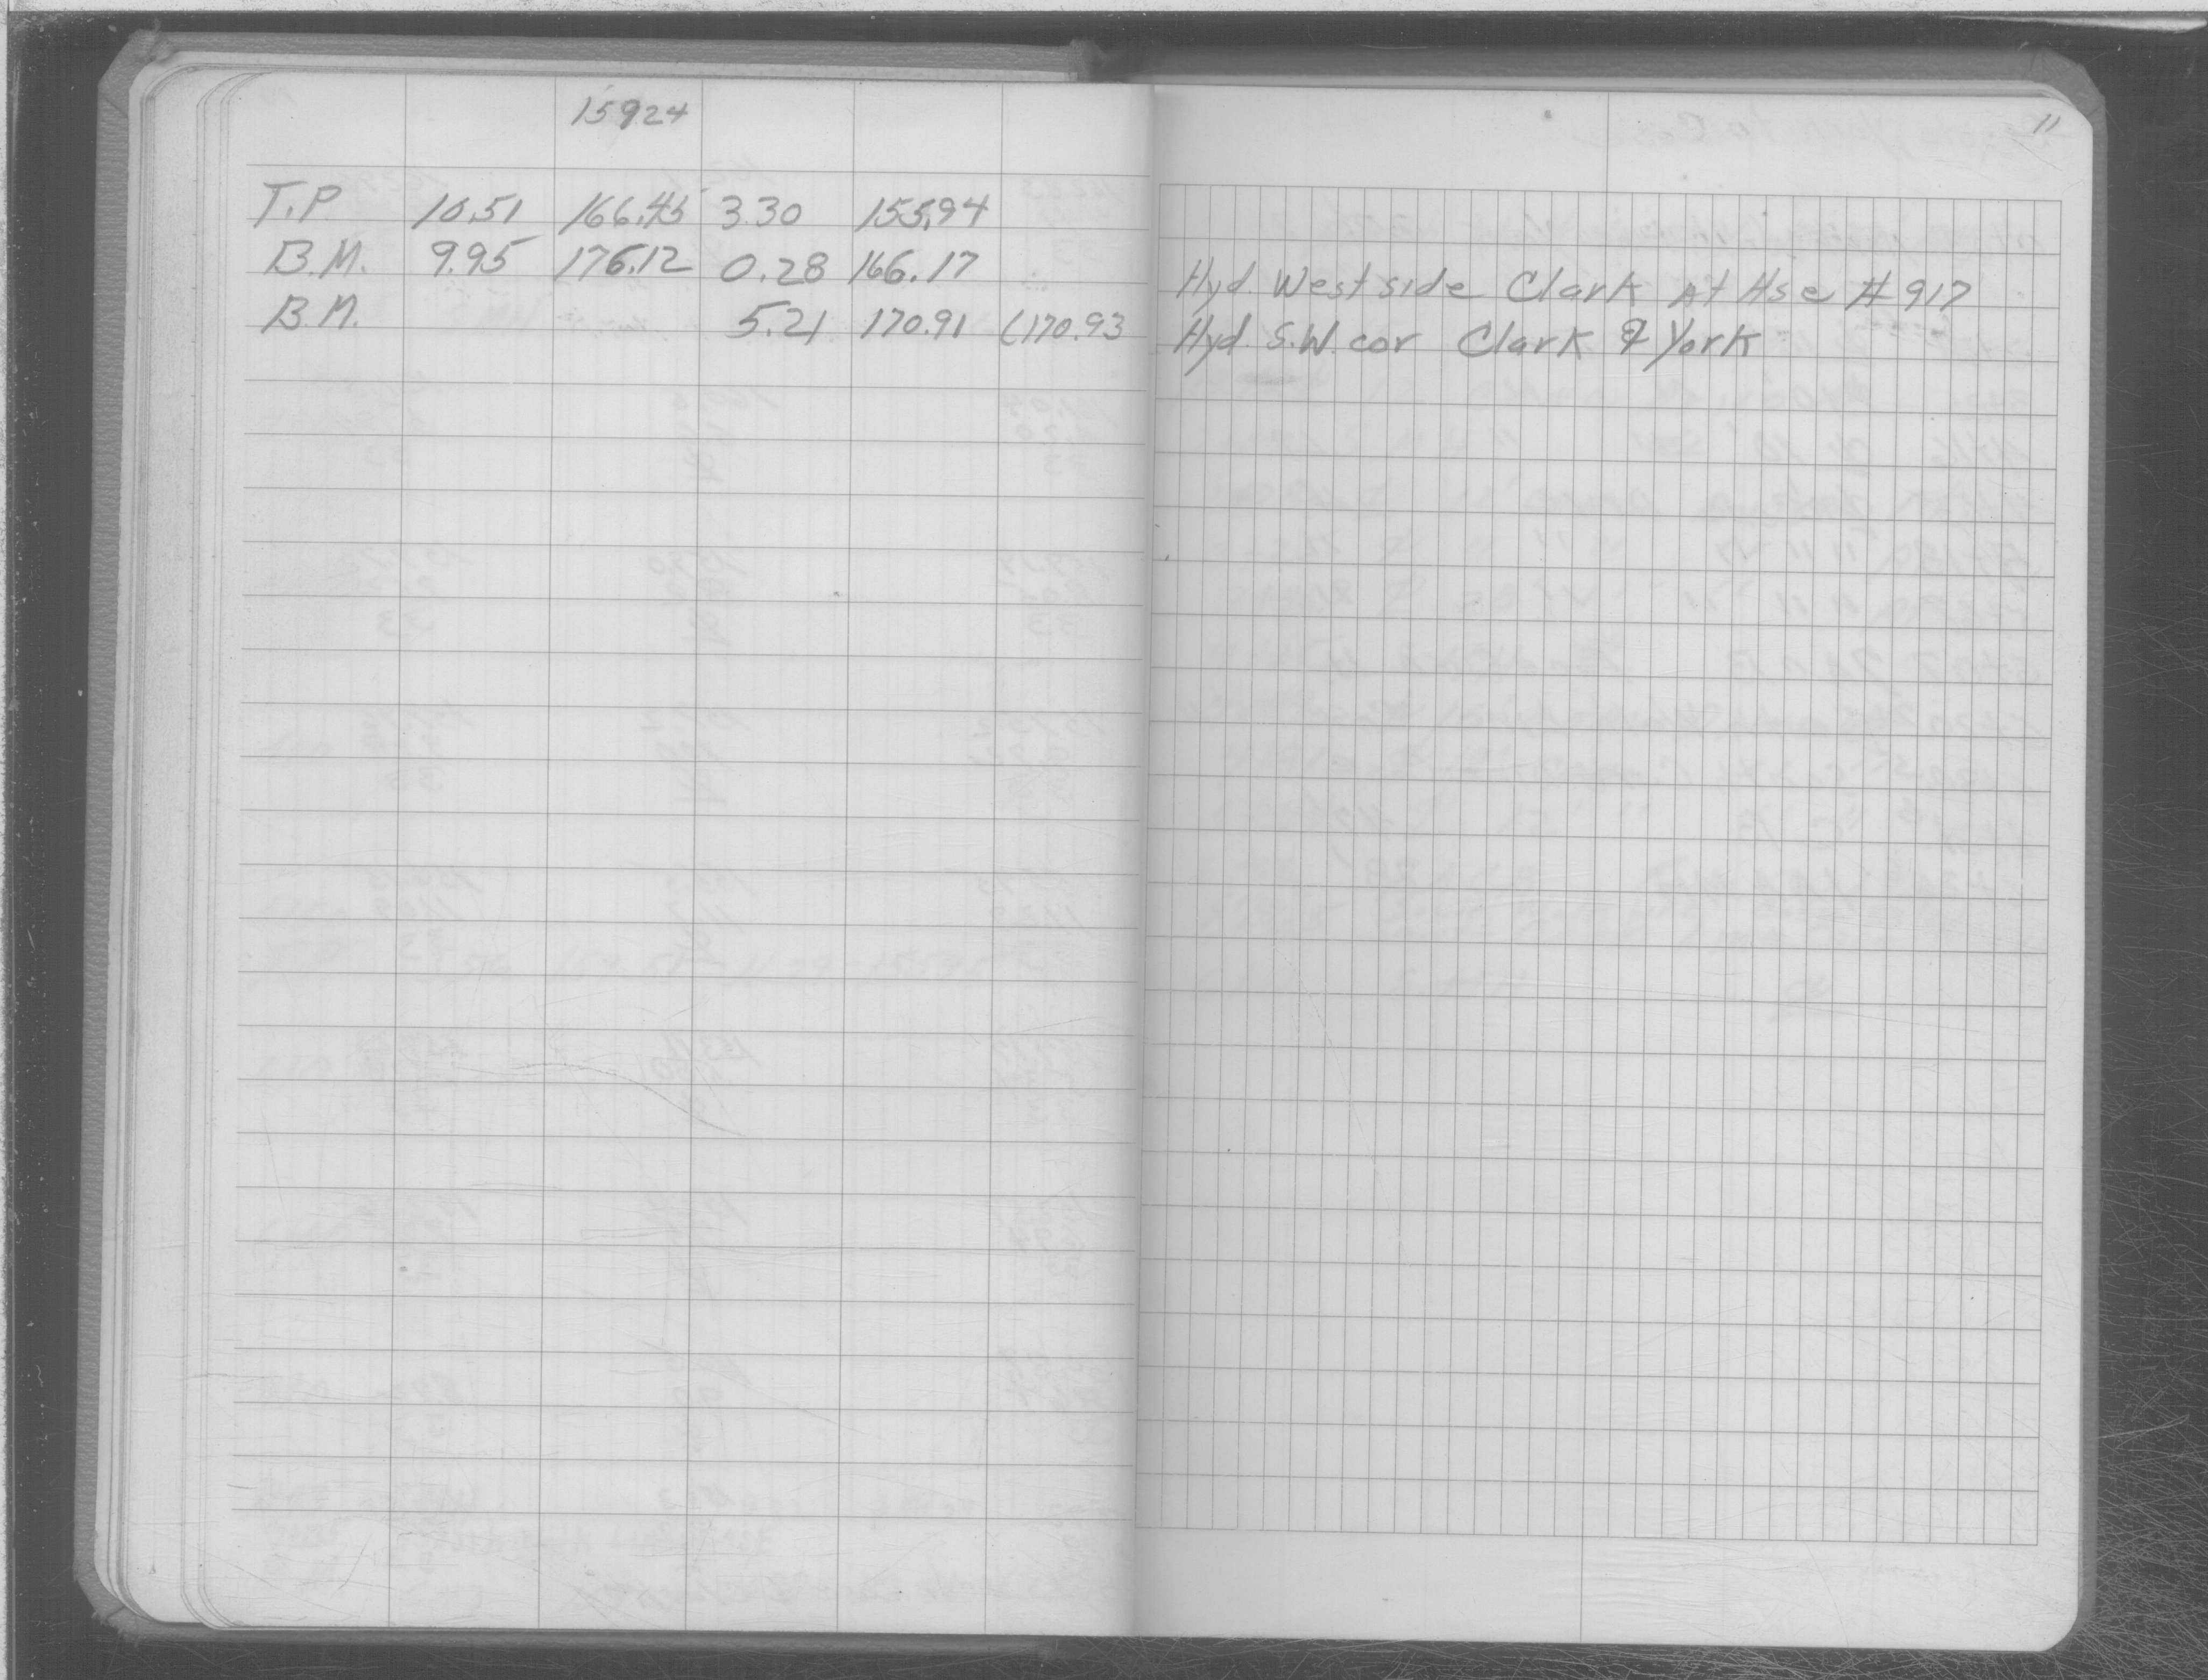 15924
11
T.P. 10.51 166.45 3.30 155.94
B.M. 9.95 176.12 0.28 166.17 Hyd. West side Clark At Hse #917
B.M. 5.21 170.91 (170.93 Hyd. S.W. cor Clark & York